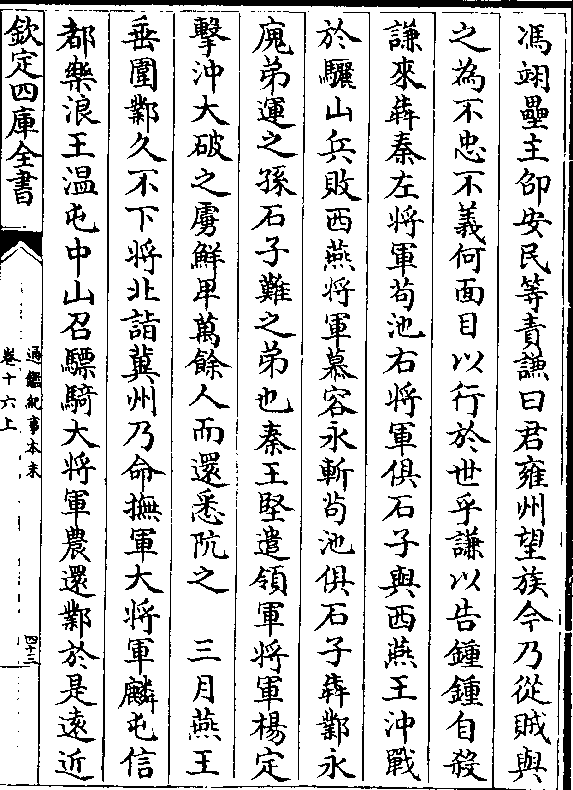 馮翊壘主邵安民等責謙曰君雍州望族今乃從賊與
之為不忠不義何面目以行於世乎謙以告鍾鍾自殺
謙來犇秦左將軍茍池右將軍俱石子與西燕王沖戰
於驪山兵敗西燕將軍慕容永斬茍池俱石子犇鄴永
廆弟運之孫石子難之弟也秦王堅遣領軍將軍楊定
擊沖大破之虜鮮卑萬餘人而還悉阬之　三月燕王
垂圍鄴久不下將北詣冀州乃命撫軍大將軍麟屯信
都樂浪王温屯中山召驃騎大將軍農還鄴於是遠近
欽定四庫全書
通鑑紀事本末
卷十六上
四十三